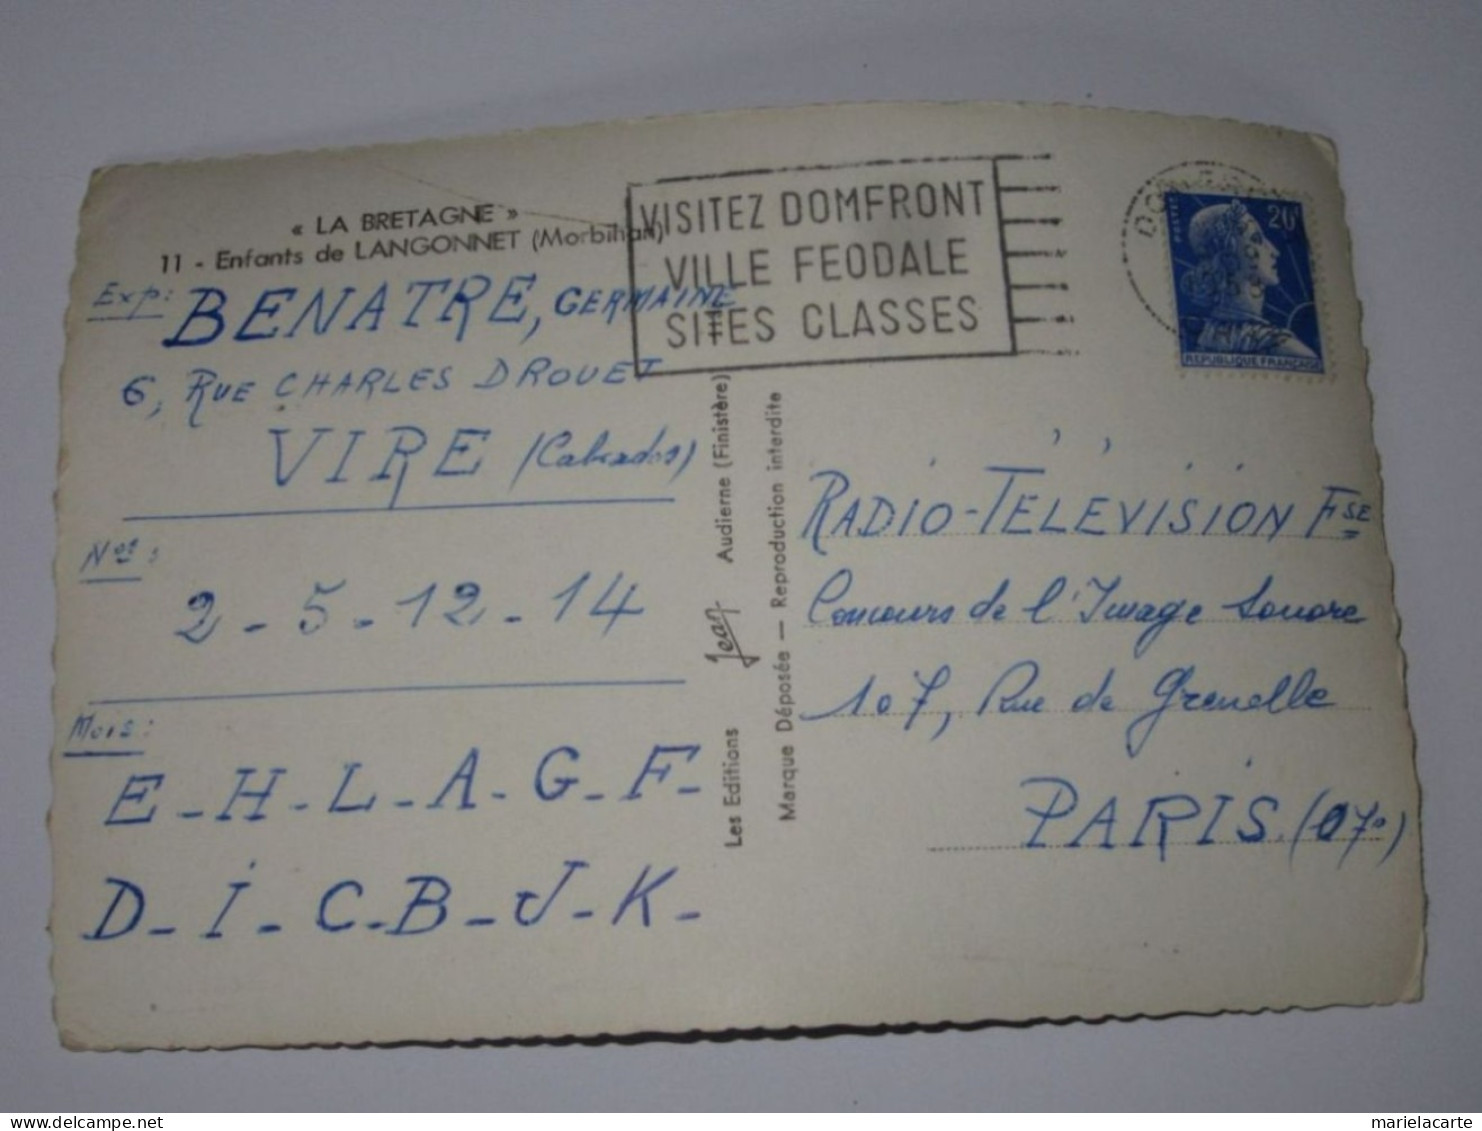 « LA BRETAGNE »
11 - Enfants de LANGONNET (Morbihan)
Exp: BENATRE, GERMAINE
6, RUE CHARLES DROUET
VIRE (Calvados)
Nos:
2 - 5 - 12 - 14
Mois:
E - H - L - A - G - F -
D - I - C - B - J - K -
Les Editions Jean Audierne (Finistère)
Marque Déposée — Reproduction interdite
VISITEZ DOMFRONT
VILLE FEODALE
SITES CLASSES
POSTES
20F
REPUBLIQUE FRANÇAISE
RADIO-TÉLÉVISION FSE
Concours de l'Image Sonore
107, Rue de Grenelle
PARIS (07º)
delcampe.net
marielacarte